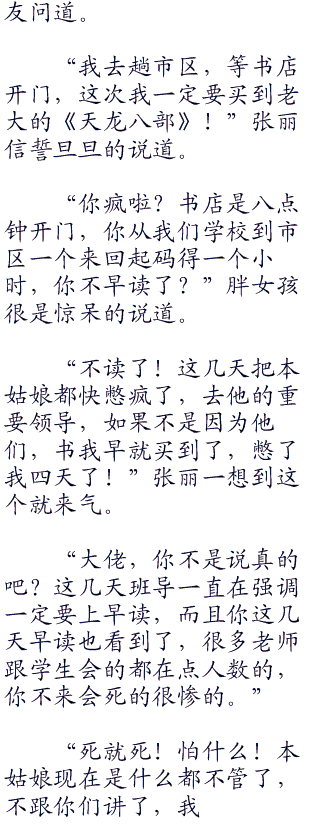 友问道。
“我去趟市区，等书店
开门，这次我一定要买到老
大的《天龙八部》！”张丽
信誓旦旦的说道。
“你疯啦？书店是八点
钟开门，你从我们学校到市
区一个来回起码得一个小
时，你不早读了？”胖女孩
很是惊呆的说道。
“不读了！这几天把本
姑娘都快憋疯了，去他的重
要领导，如果不是因为他
们，书我早就买到了，憋了
我四天了！”张丽一想到这
个就来气。
“大佬，你不是说真的
吧？这几天班导一直在强调
一定要上早读，而且你这几
天早读也看到了，很多老师
跟学生会的都在点人数的，
你不来会死的很惨的。”
“死就死！怕什么！本
姑娘现在是什么都不管了，
不跟你们讲了，我